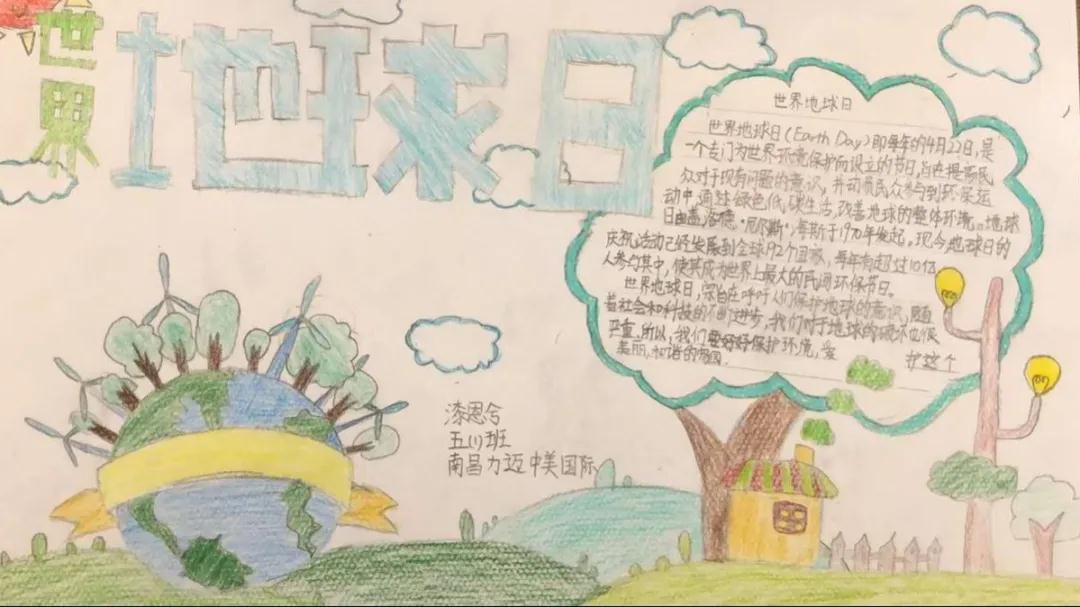 世界地球日
世界地球日
世界地球日(Earth Day)即每年的4月22日,是
一个专门为世界环境保护而设立的节日,旨在提高民
众对于现有问题的意识,并动员民众参与到环保运
动中,通过绿色低碳生活,改善地球的整体环境。地球
日由盖洛德·尼尔斯海斯于1970年发起。现今地球日的
庆祝活动已经发展到全球192个国家,每年有超过10亿
人参与其中,使其成为世界上最大的民间环保节日。
世界地球日,宗旨在呼吁人们保护地球的意识,随
着社会和科技的不断进步,我们对于地球的破坏也很
严重,所以,我们要好好保护环境,爱护这个
美丽,和谐的
漆恩兮
五(1)班
南昌力迈中美国际